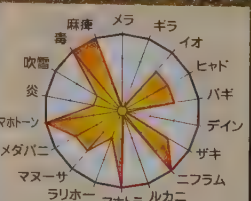 メラ
ギラ
イオ
ヒャド
バギ
デイン
ザキ
ニフラム
ルカニ
ラリホー
マヌーサ
メダパニ
マホトーン
炎
吹雪
毒
麻痺